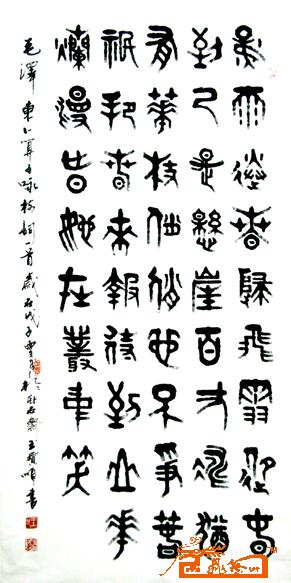 風雨送春歸飛雪迎春
到已是懸崖百丈冰猶
有華枝俏俏也不爭春
祇把春來報待到山華
爛漫時她在叢中笑
毛澤東卜算子咏梅詞一首歲在戊子 石齋王 書